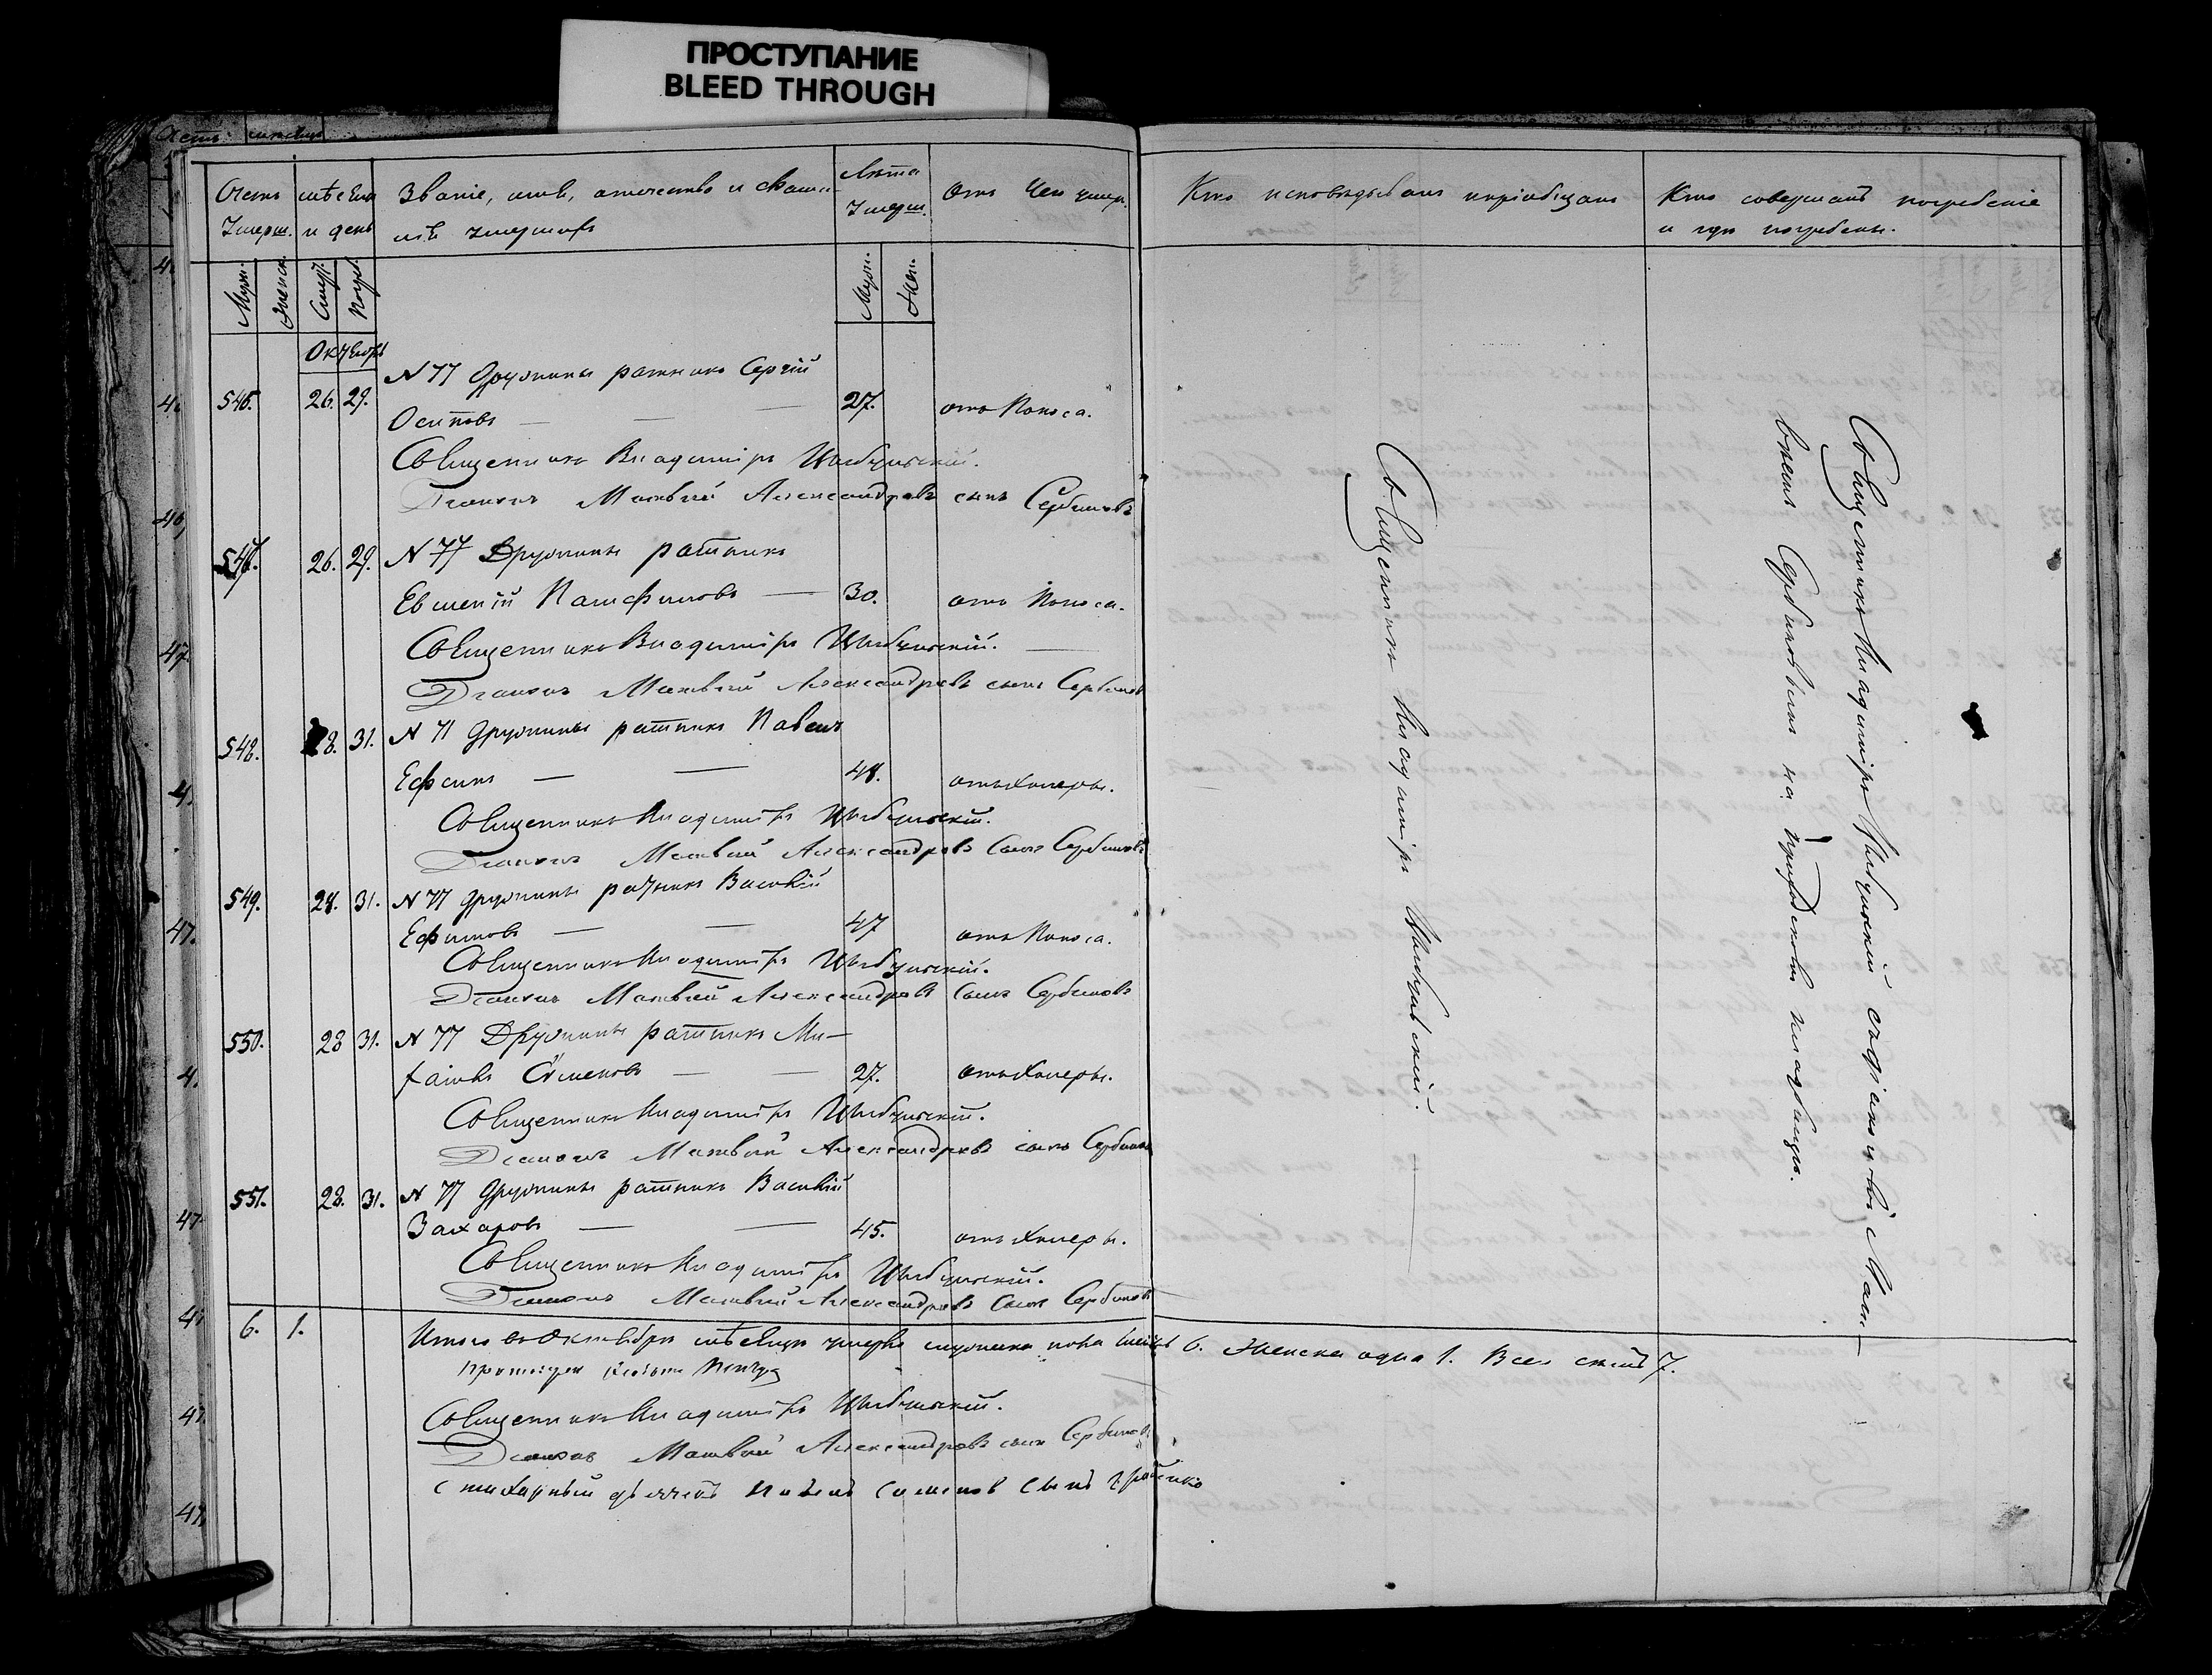 ПРОСТУПАНИЕ
BLEED THROUGH
Счетъ Умерш.
мѣсяцъ и день
Званіе, имя, отчество и фами-
лія умершаго
Лѣта Умерш.
Отъ чего умеръ.
Кто исповѣдывалъ и пріобщалъ
Кто совершалъ погребеніе
и гдѣ погребены.
Муж. Женск. Смер. Погреб. Муж. Жен.
Октябрь
546. 26. 29. N 77 Дружины ратникъ Сергій
Осиповъ — — 27. отъ Поноса.
Священникъ Владиміръ
Діаконъ Матвѣй Александровъ сынъ Сербиновъ
547. 26. 29. N 77 Дружины ратникъ
Евмений Памфиловъ — 30. отъ Поноса.
Священникъ Владиміръ
Діаконъ Матвѣй Александровъ сынъ Сербиновъ
548. 28. 31. N 71 Дружины ратникъ Павелъ
— — 48. отъ Холеры.
Священникъ Владиміръ
Діаконъ Матвѣй Александровъ сынъ Сербиновъ
549. 28. 31. N 77 Дружины ратникъ Василій
Ефимовъ — — 47 отъ Поноса.
Священникъ Владиміръ
Діаконъ Матвѣй Александровъ сынъ Сербиновъ
550. 28 31. N 77 Дружины ратникъ Ми-
хаилъ Семеновъ — — 27. отъ Холеры.
Священникъ Владиміръ
Діаконъ Матвѣй Александровъ сынъ Сербиновъ
551. 28. 31. N 77 Дружины ратникъ Василій
Захаровъ — — 45. отъ Холеры.
Священникъ Владиміръ
Діаконъ Матвѣй Александровъ сынъ Сербиновъ
6. 1. Итого въ Октябрѣ мѣсяцѣ умерло мужеска пола 6. Женска одна 1. Всего семь 7.
Священникъ Владиміръ
Діаконъ Матвѣй Александровъ сынъ Сербиновъ
Стихарный дьячекъ Павелъ Семеновъ сынъ
Священникъ Владиміръ
Священникъ Владиміръ съ діакономъ Мат-
вѣемъ Сербиновымъ на приходскомъ кладбищѣ.